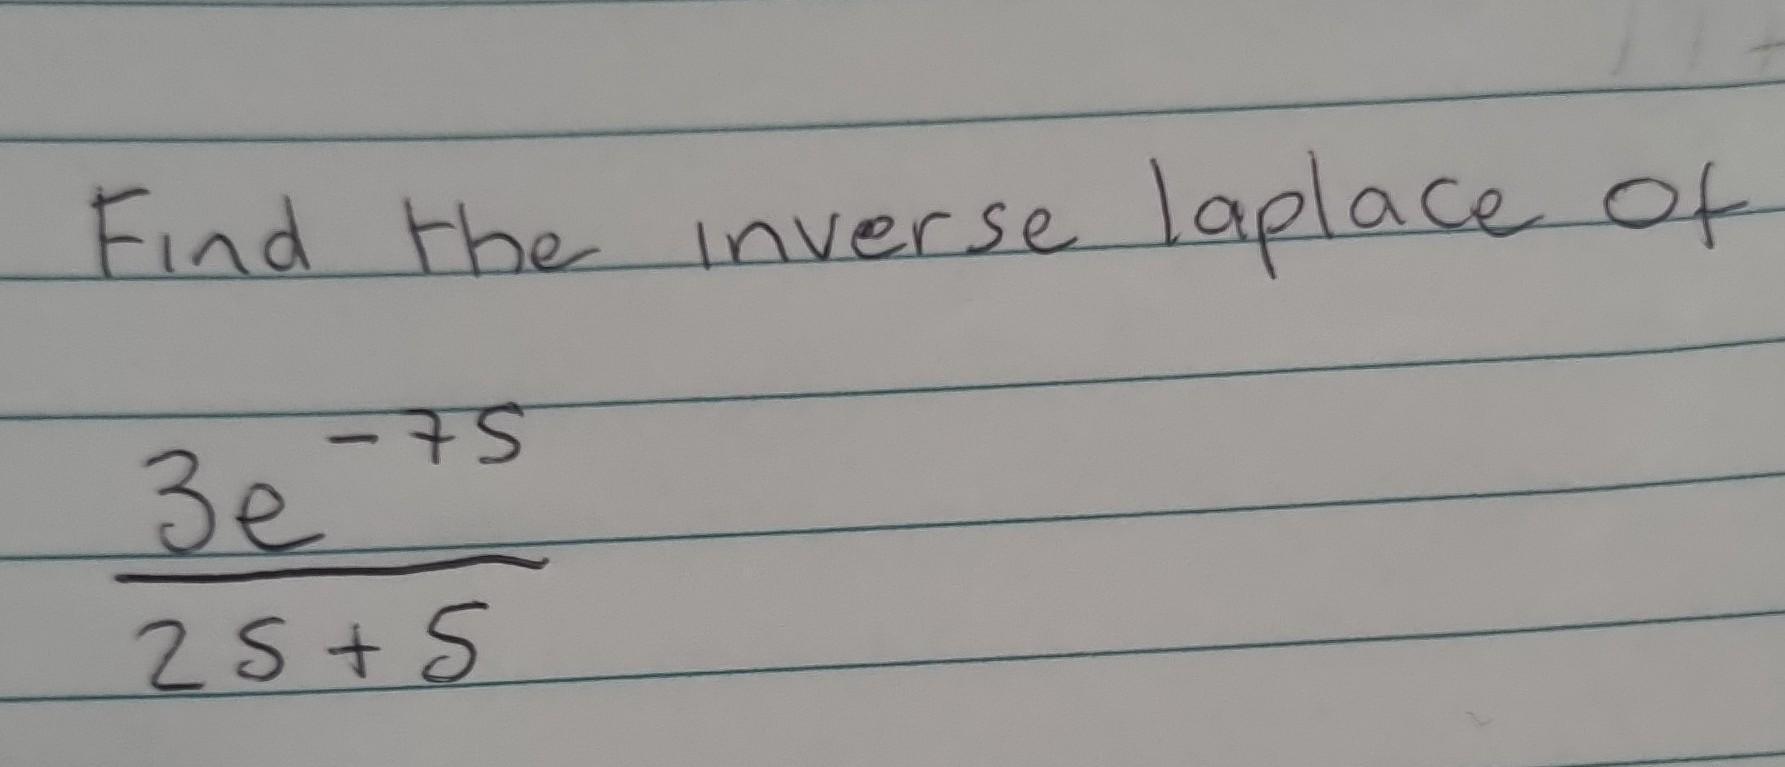 Find the inverse laplace of
3e^-7s
2s+5